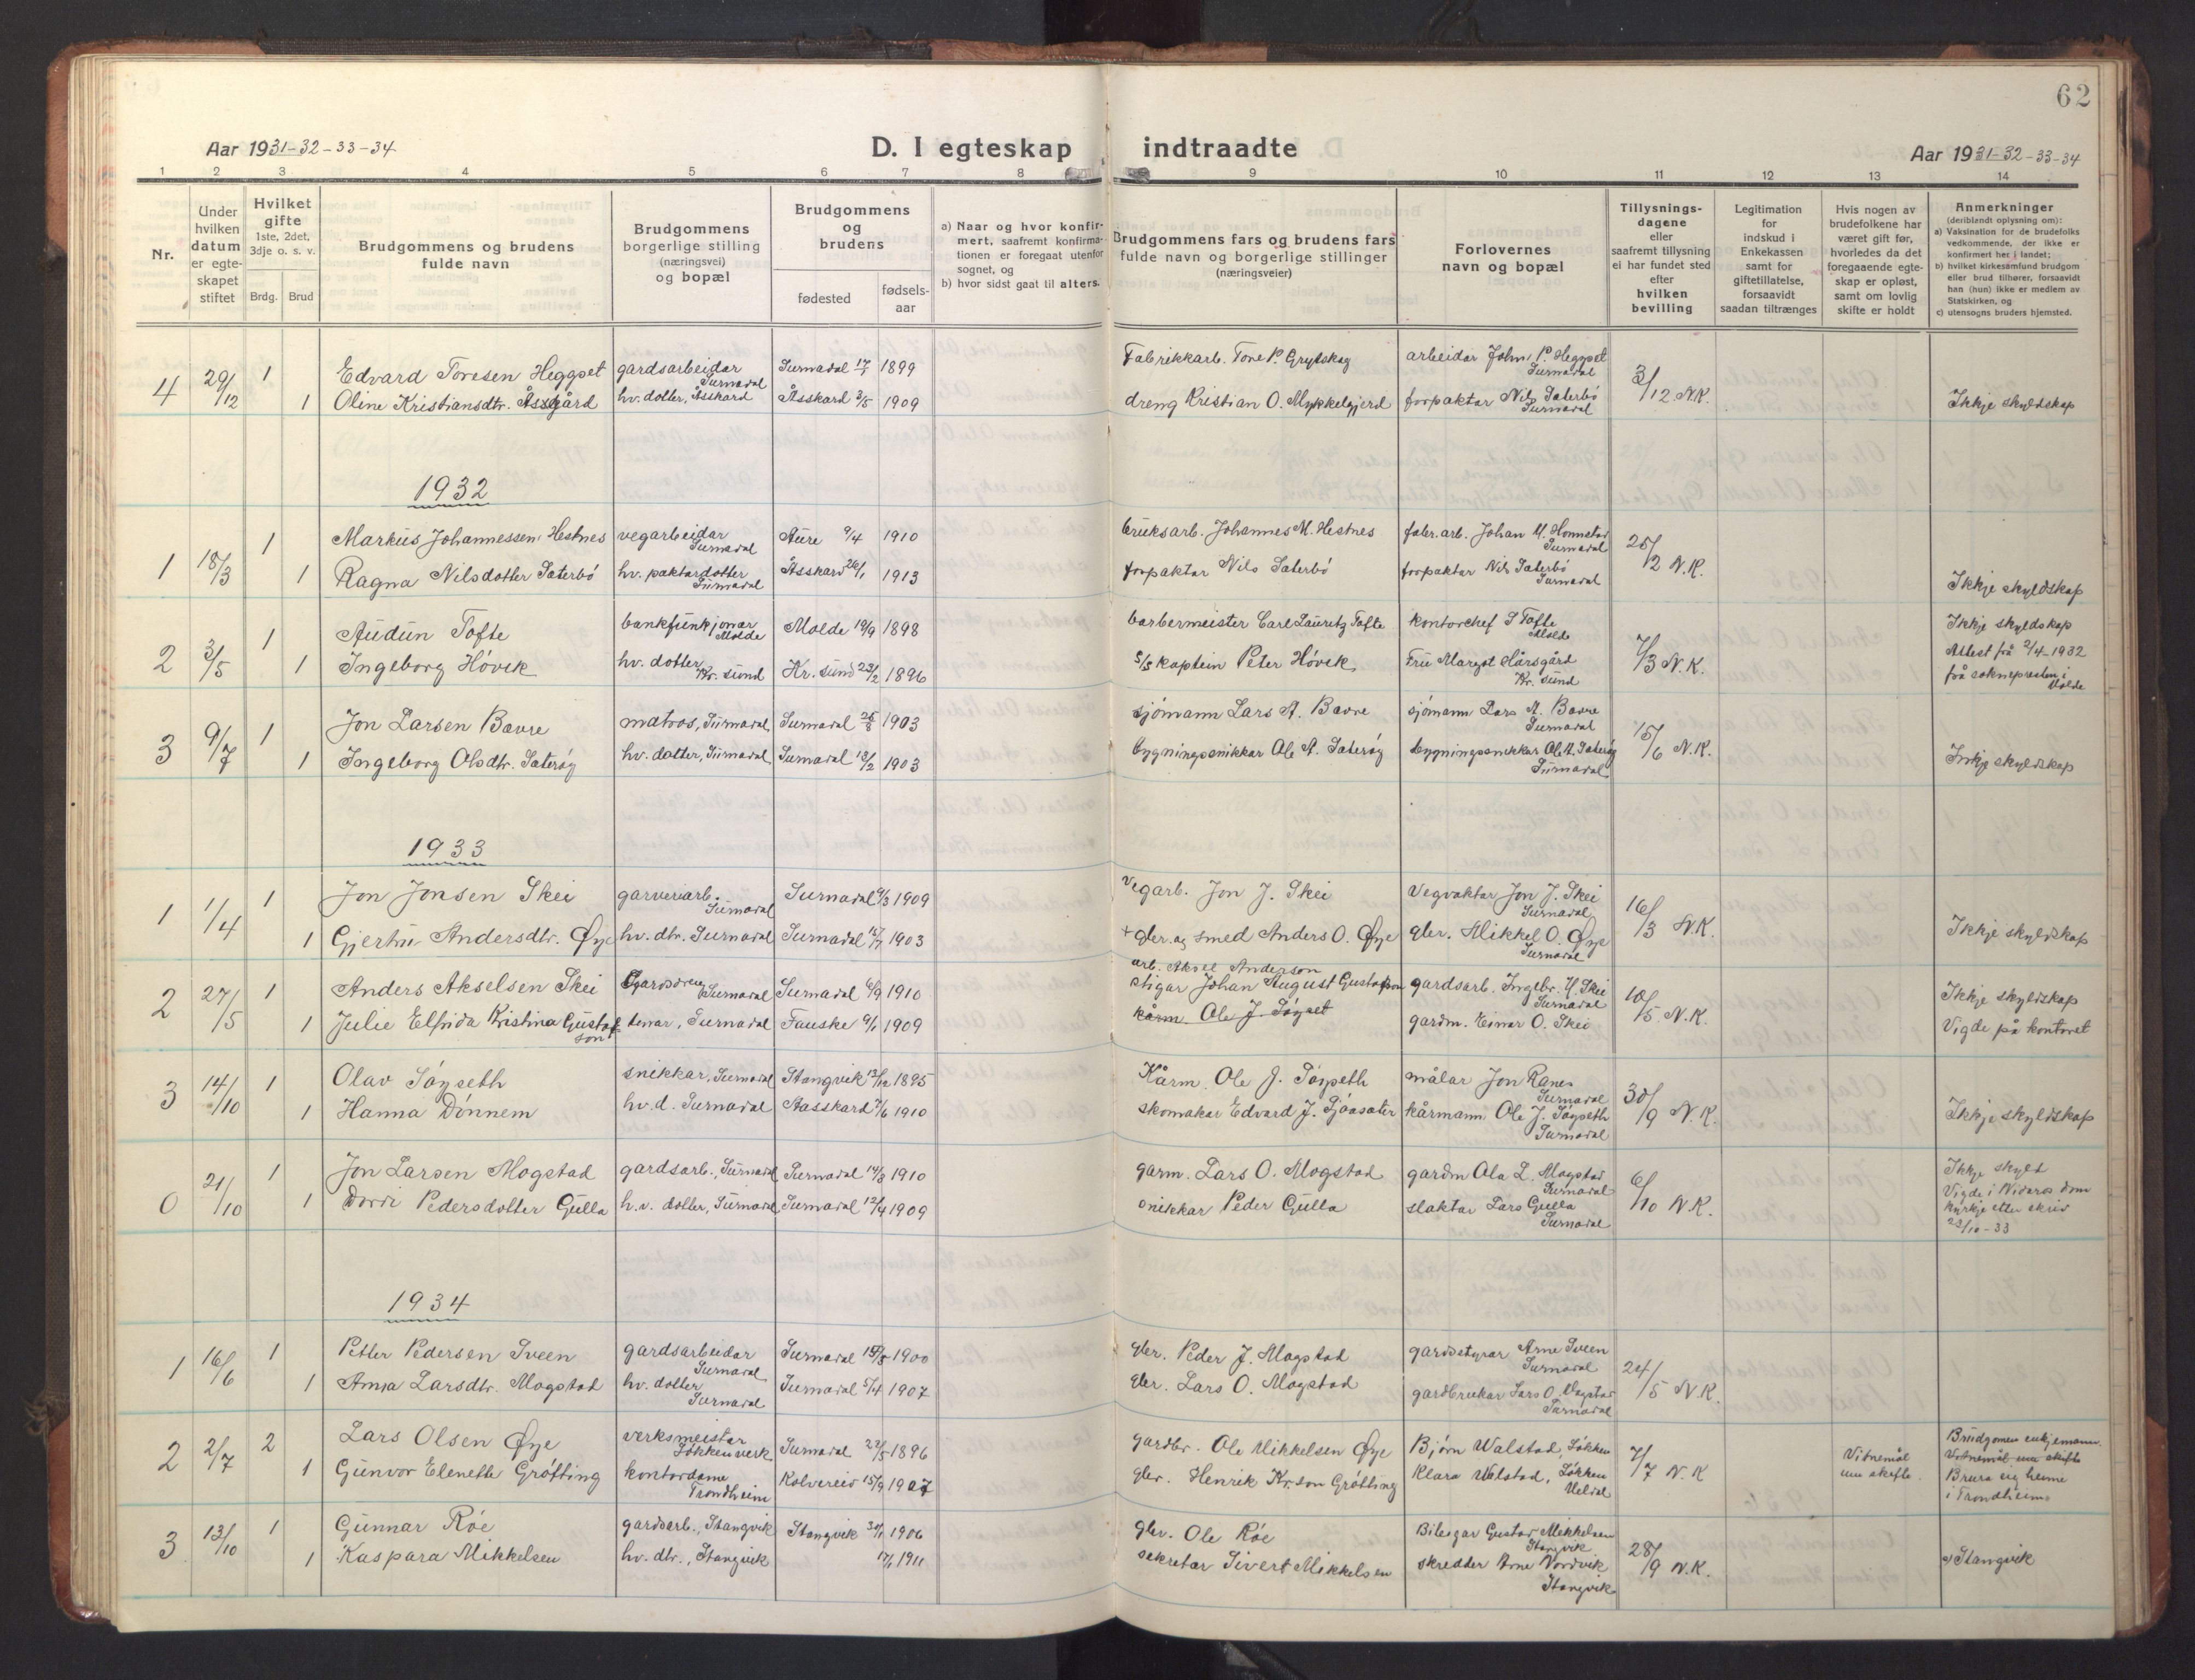 62
Aar 1931-32-33-34
D. I egteskap indtraadte
Aar 1931-32-33-34
1 2 3 4 5 6 7 8 9 10 11 12 13 14
Nr.
Under hvilken datum er egteskapet stiftet
Hvilket gifte 1ste, 2det, 3dje o. s. v.
Brdg. Brud
Brudgommens og brudens fulde navn
Brudgommens borgerlige stilling (næringsvei) og bopæl
Brudgommens og brudens
fødested
fødsels-aar
a) Naar og hvor konfirmert, saafremt konfirmationen er foregaat utenfor sognet, og
b) hvor sidst gaat til alters.
Brudgommens fars og brudens fars fulde navn og borgerlige stillinger (næringsveier)
Forlovernes navn og bopæl
Tillysningsdagene eller saafremt tillysning ei har fundet sted efter hvilken bevilling
Legitimation for indskud i Enkekassen samt for giftetillatelse, forsaavidt saadan tiltrænges
Hvis nogen av brudefolkene har været gift før, hvorledes da det foregaaende egteskap er opløst, samt om lovlig skifte er holdt
Anmerkninger: (deriblandt oplysning om):
a) Vaksination for de brudefolks vedkommende, der ikke er konfirmert her i landet;
b) hvilket kirkesamfund brudgom eller brud tilhører, forsaavidt han (hun) ikke er medlem av Statskirken, og
c) utensogns bruders hjemsted.
4 29/12 1 Edvard Toresen Heggset gardsarbeidar Surnadal Surnadal 17/7 1899 Fabrikkarb. Tore P. Grytskog arbeidar John P. Heggset Surnadal 3/12 N.K.
1 Oline Kristiansdtr. Åsskård hv. dotter, Åsskard Åsskard 3/5 1909 dreng Kristian O. Mykkelgjerd forpaktar Nils Sæterbø Surnadal Ikkje skyldskap
1932
1 18/3 1 Markus Johannessen Hestnes vegarbeidar Surnadal Aure 9/4 1910 bruksarb. Johannes M. Hestnes fabr.arb. Johan M. Honnstad Surnadal 25/2 N.K.
1 Ragna Nilsdotter Sæterbø hv. paktardotter Surnadal Åsskard 26/1 1913 forpaktar Nils Sæterbø forpaktar Nils Sæterbø Surnadal Ikkje skyldskap
2 3/5 1 Audun Tofte bankfunkjonær Molde Molde 19/9 1898 barbermeister Carl Lauritz Tofte kontorchef S Tofte Molde 7/3 N.K. Ikkje skyldskap
1 Ingeborg Høvik hv. dotter Kr. sund Kr. sund 23/2 1896 S/S kaptein Peter Høvik Fru Margot Hårsgård Kr. sund Attest frå 2/4-1932 frå soknepresten i Molde
3 9/7 1 Jon Larsen Bævre matros, Surnadal Surnadal 25/8 1903 sjømann Lars A. Bævre sjømann Lars A. Bævre Surnadal 15/6 N.K.
1 Ingeborg Olsdtr. Sæterøy hv. dotter, Surnadal Surnadal 13/2 1903 bygningssnikkar Ole A. Sæterøy bygningssnikkar Ole A. Sæterøy Surnadal Inkje skyldskap
1933
1 1/4 1 Jon Jonsen Skei garveriarb. Surnadal Surnadal 9/3 1909 Vegarb. Jon J. Skei Vegvaktar Jon J. Skei Surnadal 16/3 N.K.
1 Gjertru Andersdtr. Øye hv. dtr. Surnadal Surnadal 16/7 1903 + gbr. og smed Anders O. Øye gbr. Mikkel O. Øye Surnadal Ikkje skyldskap
2 27/5 1 Anders Akselsen Skei Gardsdreng Surnadal Surnadal 6/9 1910 arb. Aksel Anderson gardsarb. Ingebr. H. Skei Surnadal 10/5 N.K. Ikkje skyldskap
1 Julie Elfrida Kristina Gustafson tenar, Surnadal Fauske 9/1 1909 stigar Johan August Gustafson gardm. Einar O. Skei Vigde på kontoret
kårm. Ole J. Søyset
3 14/10 1 Olav Søyseth snikkar, Surnadal Stangvik 12/12 1895 Kårm. Ole J. Søyseth målar Jon Ranes Surnadal 30/9 N.K.
1 Hanna Dønnem hv.d. Surnadal Aasskard 7/6 1910 skomakar Edvard J. Sjøasæter kårmann Ole J. Søyseth Surnadal Ikkje skyldskap
0 21/10 1 Jon Larsen Mogstad gardsarb., Surnadal Surnadal 14/3 1910 garm. Lars O. Mogstad gardm Ola L. Mogstad Surnadal 6/10 N.K. Ikkje skyld
1 Dordi Pedersdotter Gulla h.v. dotter, Surnadal Surnadal 12/4 1909 snikkar Peder Gulla slaktar Lars Gulla Surnadal Vigde i Nidaros dom kyrkje etter skriv 23/10-33
1934
1 16/6 1 Petter Pedersen Sveen gardsarbeidar Surnadal Surnadal 15/3 1900 gbr. Peder J. Mogstad gardsstyrar Arne Sveen Surnadal 24/5 N.K.
1 Anna Larsdtr. Mogstad hv. dotter Surnadal Surnadal 5/4 1907 gbr. Lars O. Mogstad gardbrukar Lars O. Mogstad Surnadal
2 2/7 2 Lars Olsen Øye verksmeister Løkken verk Surnadal 22/5 1896 gardbr. Ole Mikkelsen Øye Bjørn Walstad, Løkken 7/7 N.K Vitnemål um skifte. Brudgomen enkjemann.
Vitnemål um skifte
1 Gunvor Elenette Grøtting kontordame Trondheim Kolvereid 15/9 1907 gbr. Henrik Kr.son Grøtting Klara Walstad, Løkken Meldal Brura eig heime i Trondheim.
3 13/10 1 Gunnar Røe gardsarb., Stangvik Stangvik 30/1 1906 gbr. Ole Røe Bileigar Gustav Mikkelsen Stangvik 28/9 N.K.
1 Kaspara Mikkelsen hv. dtr., Stangvik 17/1 1911 sekretær Sivert Mikkelsen skredder Arne Nordvik Stangvik c) Stangvik